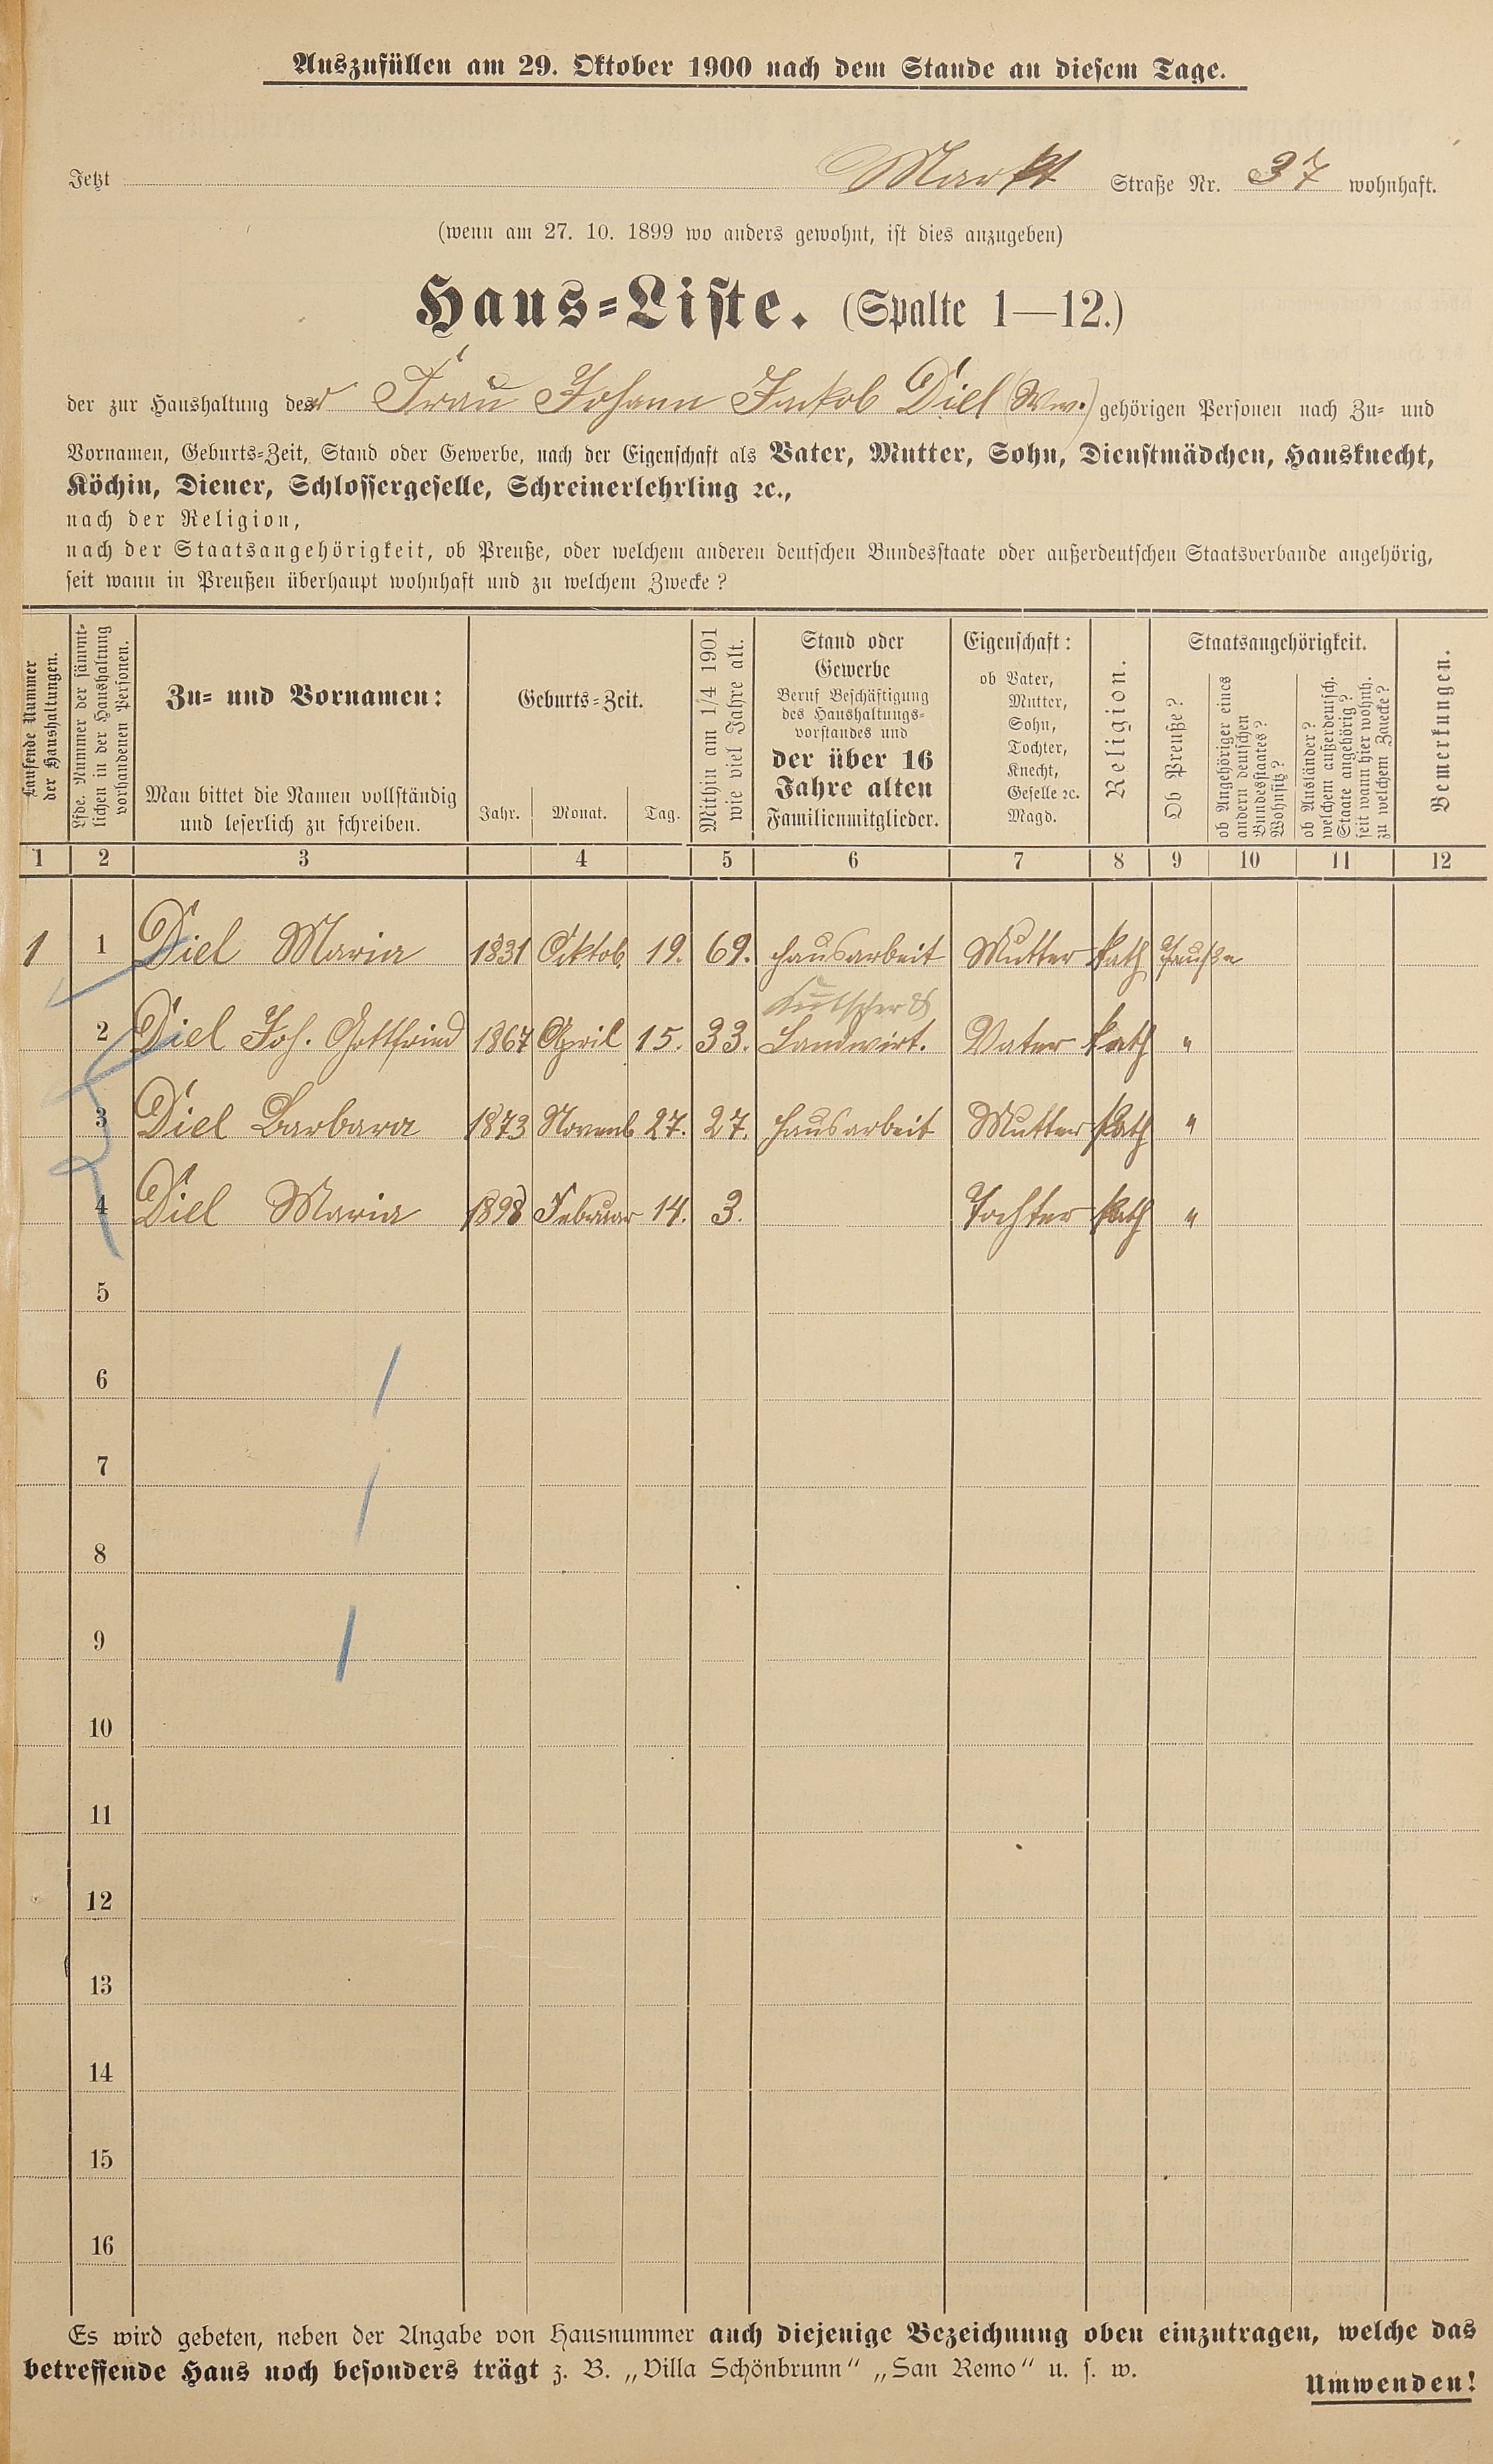 Auszufüllen am 29. Oktober 1900 nach dem Stande an diesem Tage.
Jetzt Markt Straße Nr. 37 wohnhaft.
(wenn am 27. 10. 1899 wo anders gewohnt, ist dies anzugeben)
Haus-Liste. (Spalte 1—12.)
der zur Haushaltung der Frau Johann Jakob Diel (Ww.) gehörigen Personen nach Zu- und
Vornamen, Geburts-Zeit, Stand oder Gewerbe, nach der Eigenschaft als Vater, Mutter, Sohn, Dienstmädchen, Hausknecht,
Köchin, Diener, Schlossergeselle, Schreinerlehrling ꝛc.,
nach der Religion,
nach der Staatsangehörigkeit, ob Preuße, oder welchem anderen deutschen Bundesstaate oder außerdeutschen Staatsverbande angehörig,
seit wann in Preußen überhaupt wohnhaft und zu welchem Zwecke?
Laufende Nummer
der Haushaltungen.
Lfde. Nummer der sämmt-
lichen in der Haushaltung
vorhandenen Personen.
Zu- und Vornamen:
Man bittet die Namen vollständig
und leserlich zu schreiben.
Geburts-Zeit.
Jahr. Monat. Tag.
Mithin am 1/4 1901
wie viel Jahre alt.
Stand oder
Gewerbe
Beruf Beschäftigung
des Haushaltungs-
vorstandes und
der über 16
Jahre alten
Familienmitglieder.
Eigenschaft:
ob Vater,
Mutter,
Sohn,
Tochter,
Knecht,
Geselle ꝛc.
Magd.
Religion.
Staatsangehörigkeit.
Ob Preuße?
ob Angehöriger eines
andern deutschen
Bundesstaates?
Wohnsitz?
ob Ausländer?
welchem außerdeutsch.
Staate angehörig?
seit wann hier wohnh.
zu welchem Zwecke?
Bemerkungen.
1 2 3 4 5 6 7 8 9 10 11 12
1 1 Diel Maria 1831 Oktob. 19. 69. Hausarbeit Mutter kath Preuße
Kutscher &
2 Diel Joh. Gottfried 1867 April 15. 33. Landwirt. Vater kath "
3 Diel Barbara 1873 Novemb 27. 27. Hausarbeit Mutter kath "
4 Diel Maria 1898 Februar 14. 3. Tochter kath "
5
6
7
8
9
10
11
12
13
14
15
16
Es wird gebeten, neben der Angabe von Hausnummer auch diejenige Bezeichnung oben einzutragen, welche das
betreffende Haus noch besonders trägt z. B. „Villa Schönbrunn“ „San Remo“ u. s. w.
Umwenden!